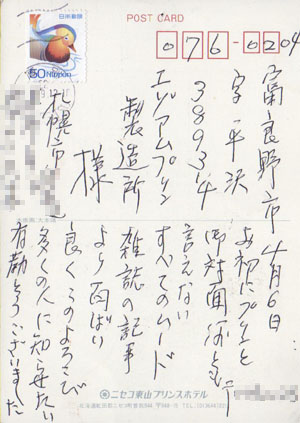 POST CARD
日本郵便
50 Nippon
076-0204
富良野市
字平沢
3893-4
エゾアムプリン
製造所
様
札幌市
4月6日
お初にプリンと
御対面 何とも
言えない
すべてのムード
雑誌の記事
より面ばい
良くそのよろこび
多くの人に知らせたい
有難とうございました
ニセコ東山プリンスホテル